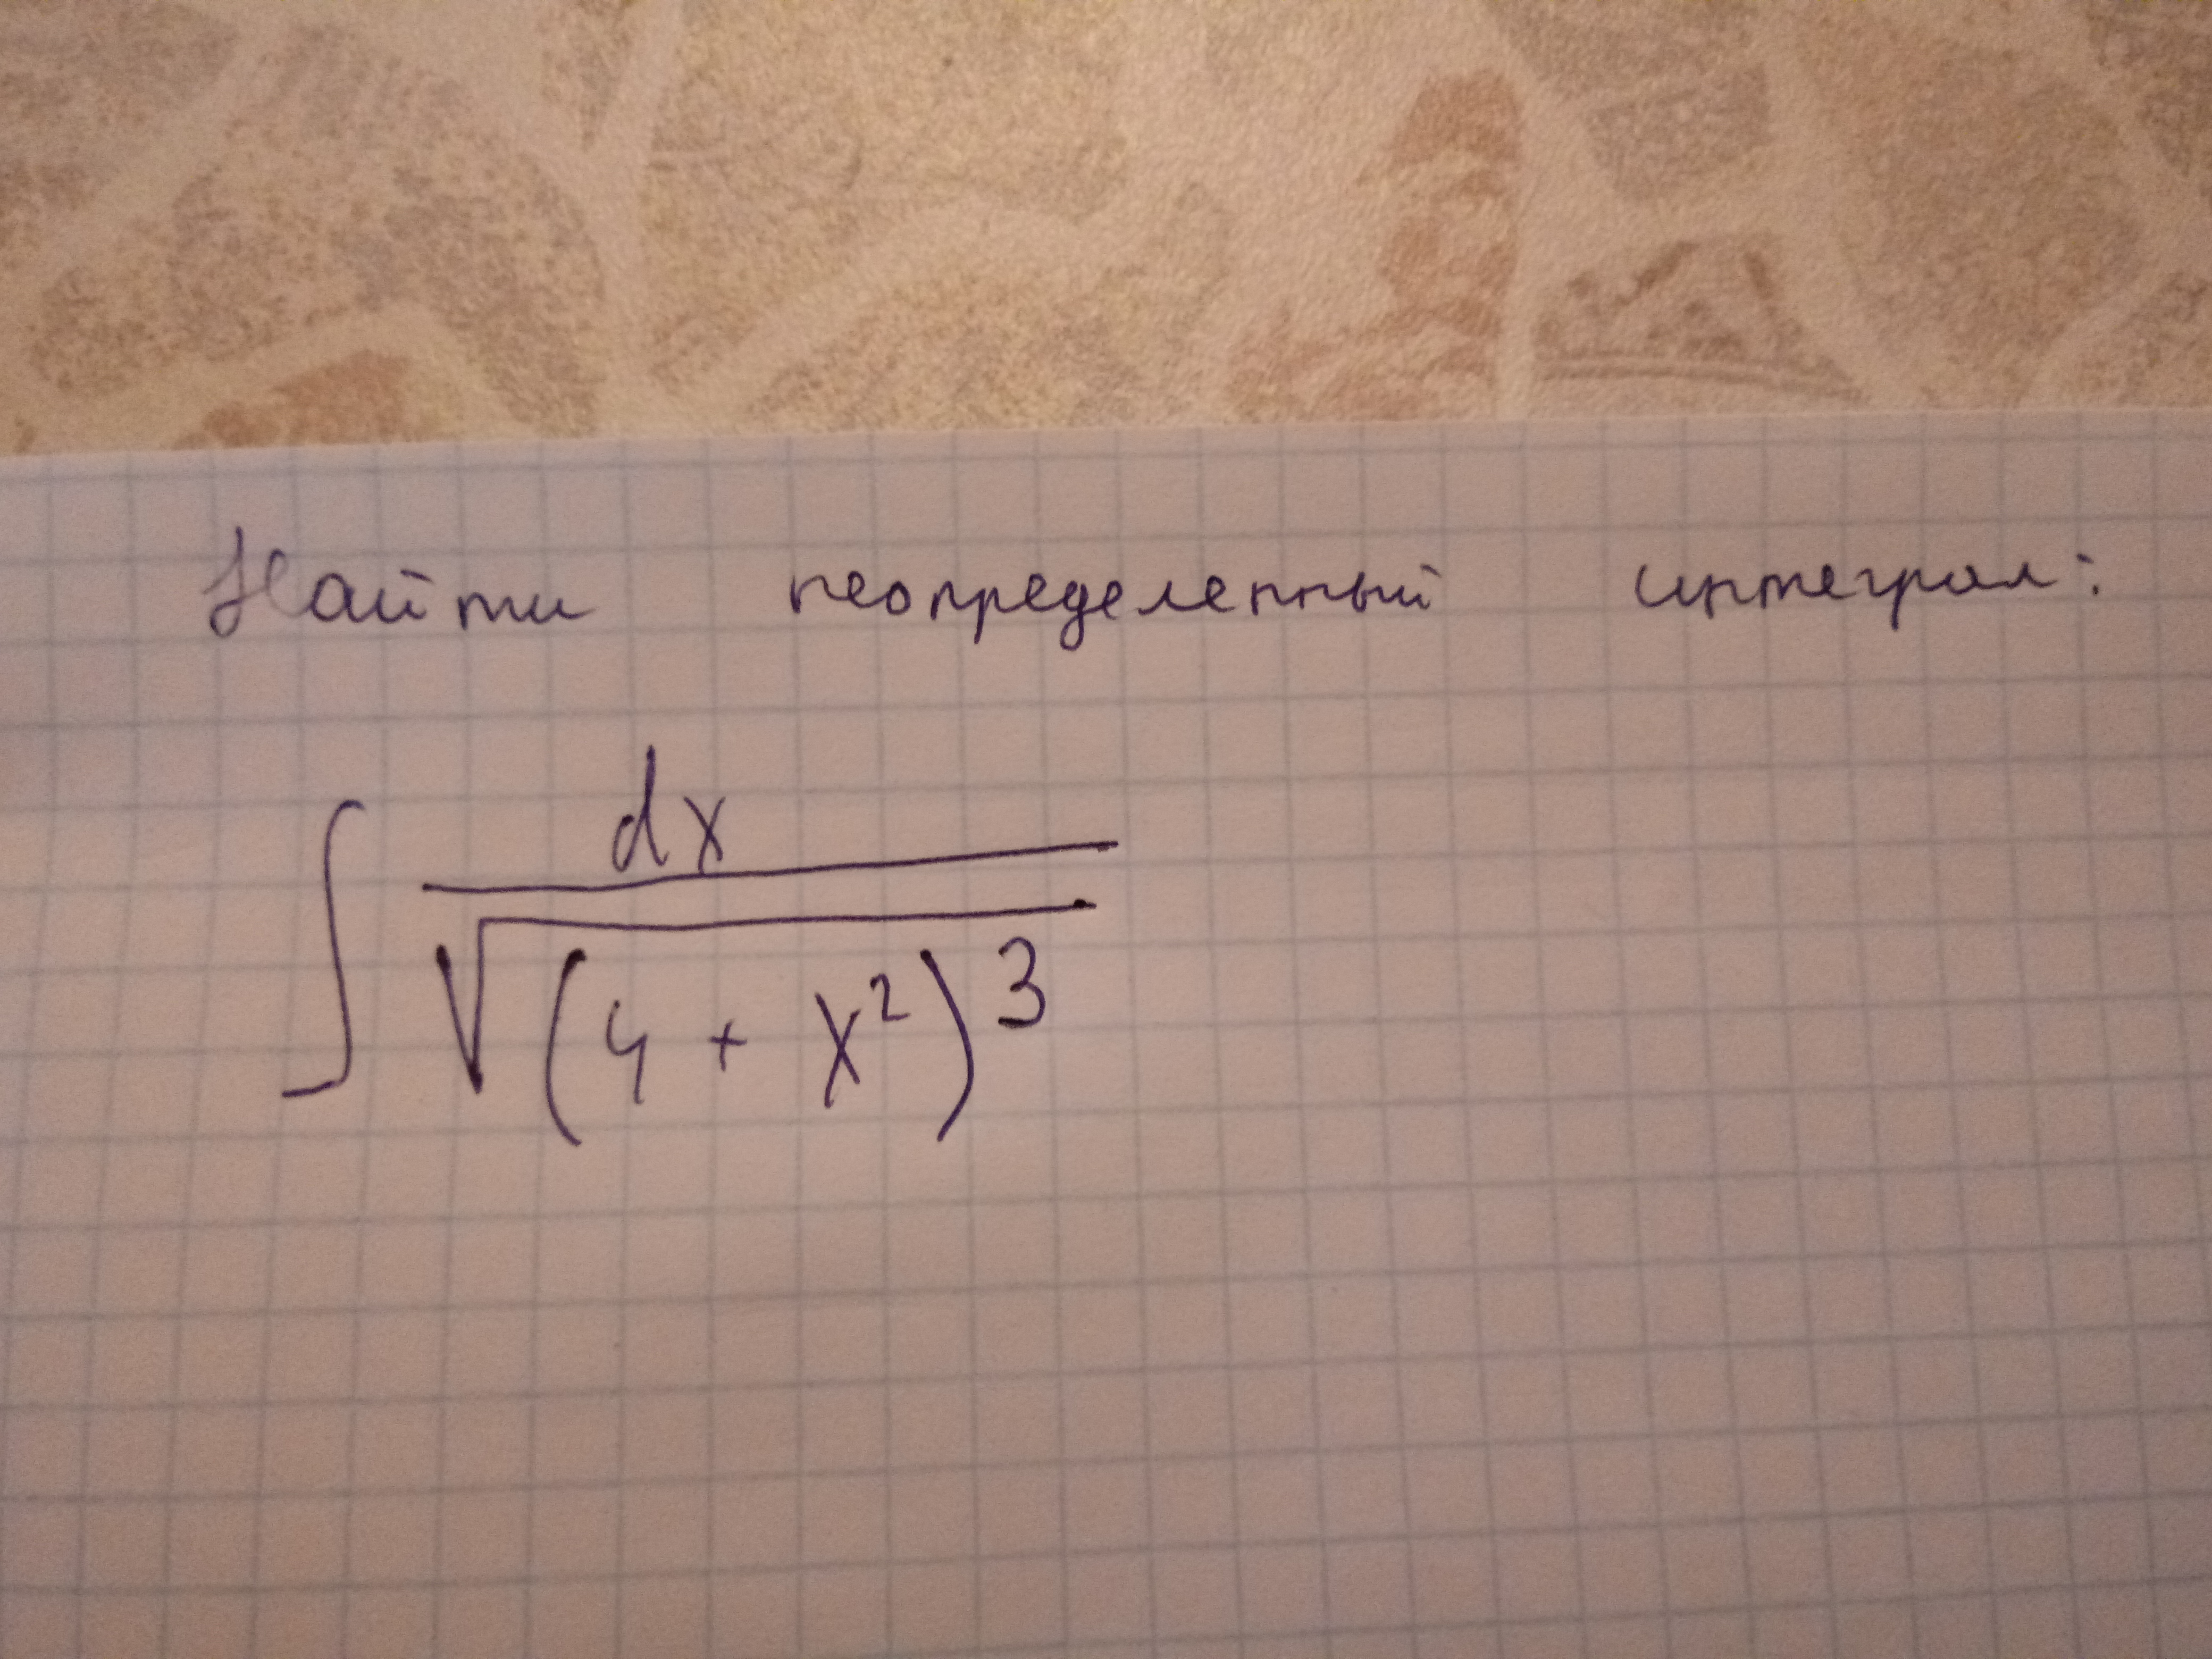 Найти неопределенный интеграл:
∫ dx / √(4 + x²)³